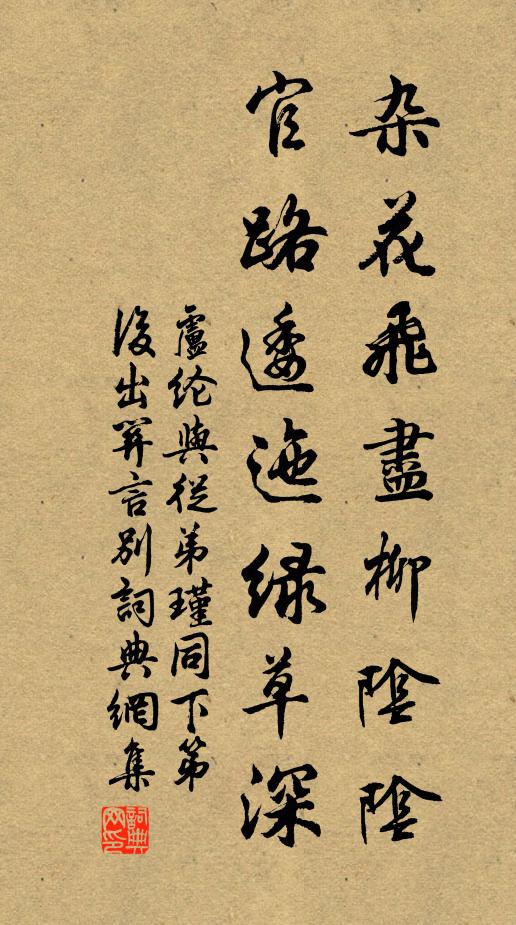 杂花飛盡柳陰陰
官路逶迤绿草深
盧纶與從弟瑾同下第
後出關言别詞典網集
詞典网印